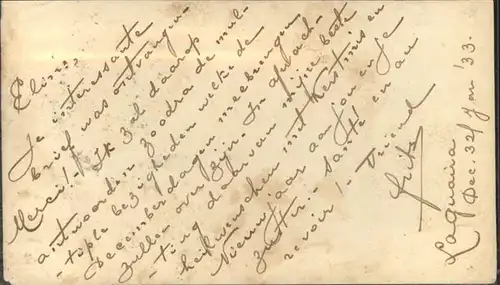 Elvire
Je interessante
brief was ontvangen.
Merci! - Ik zal daarop
antwoorden zoodra de mul-
-tiple bezigheden welke de
December dagen meebrengen
zullen over zijn. - In afwach-
-ting daarvan mijne beste
heilwenschen met Kerstmis en
Nieuwjaar aan jou en Je
zuster. - Santé en au
revoir! - Vriend
Fritz
Laguaira
Dec. 32/Jan '33.